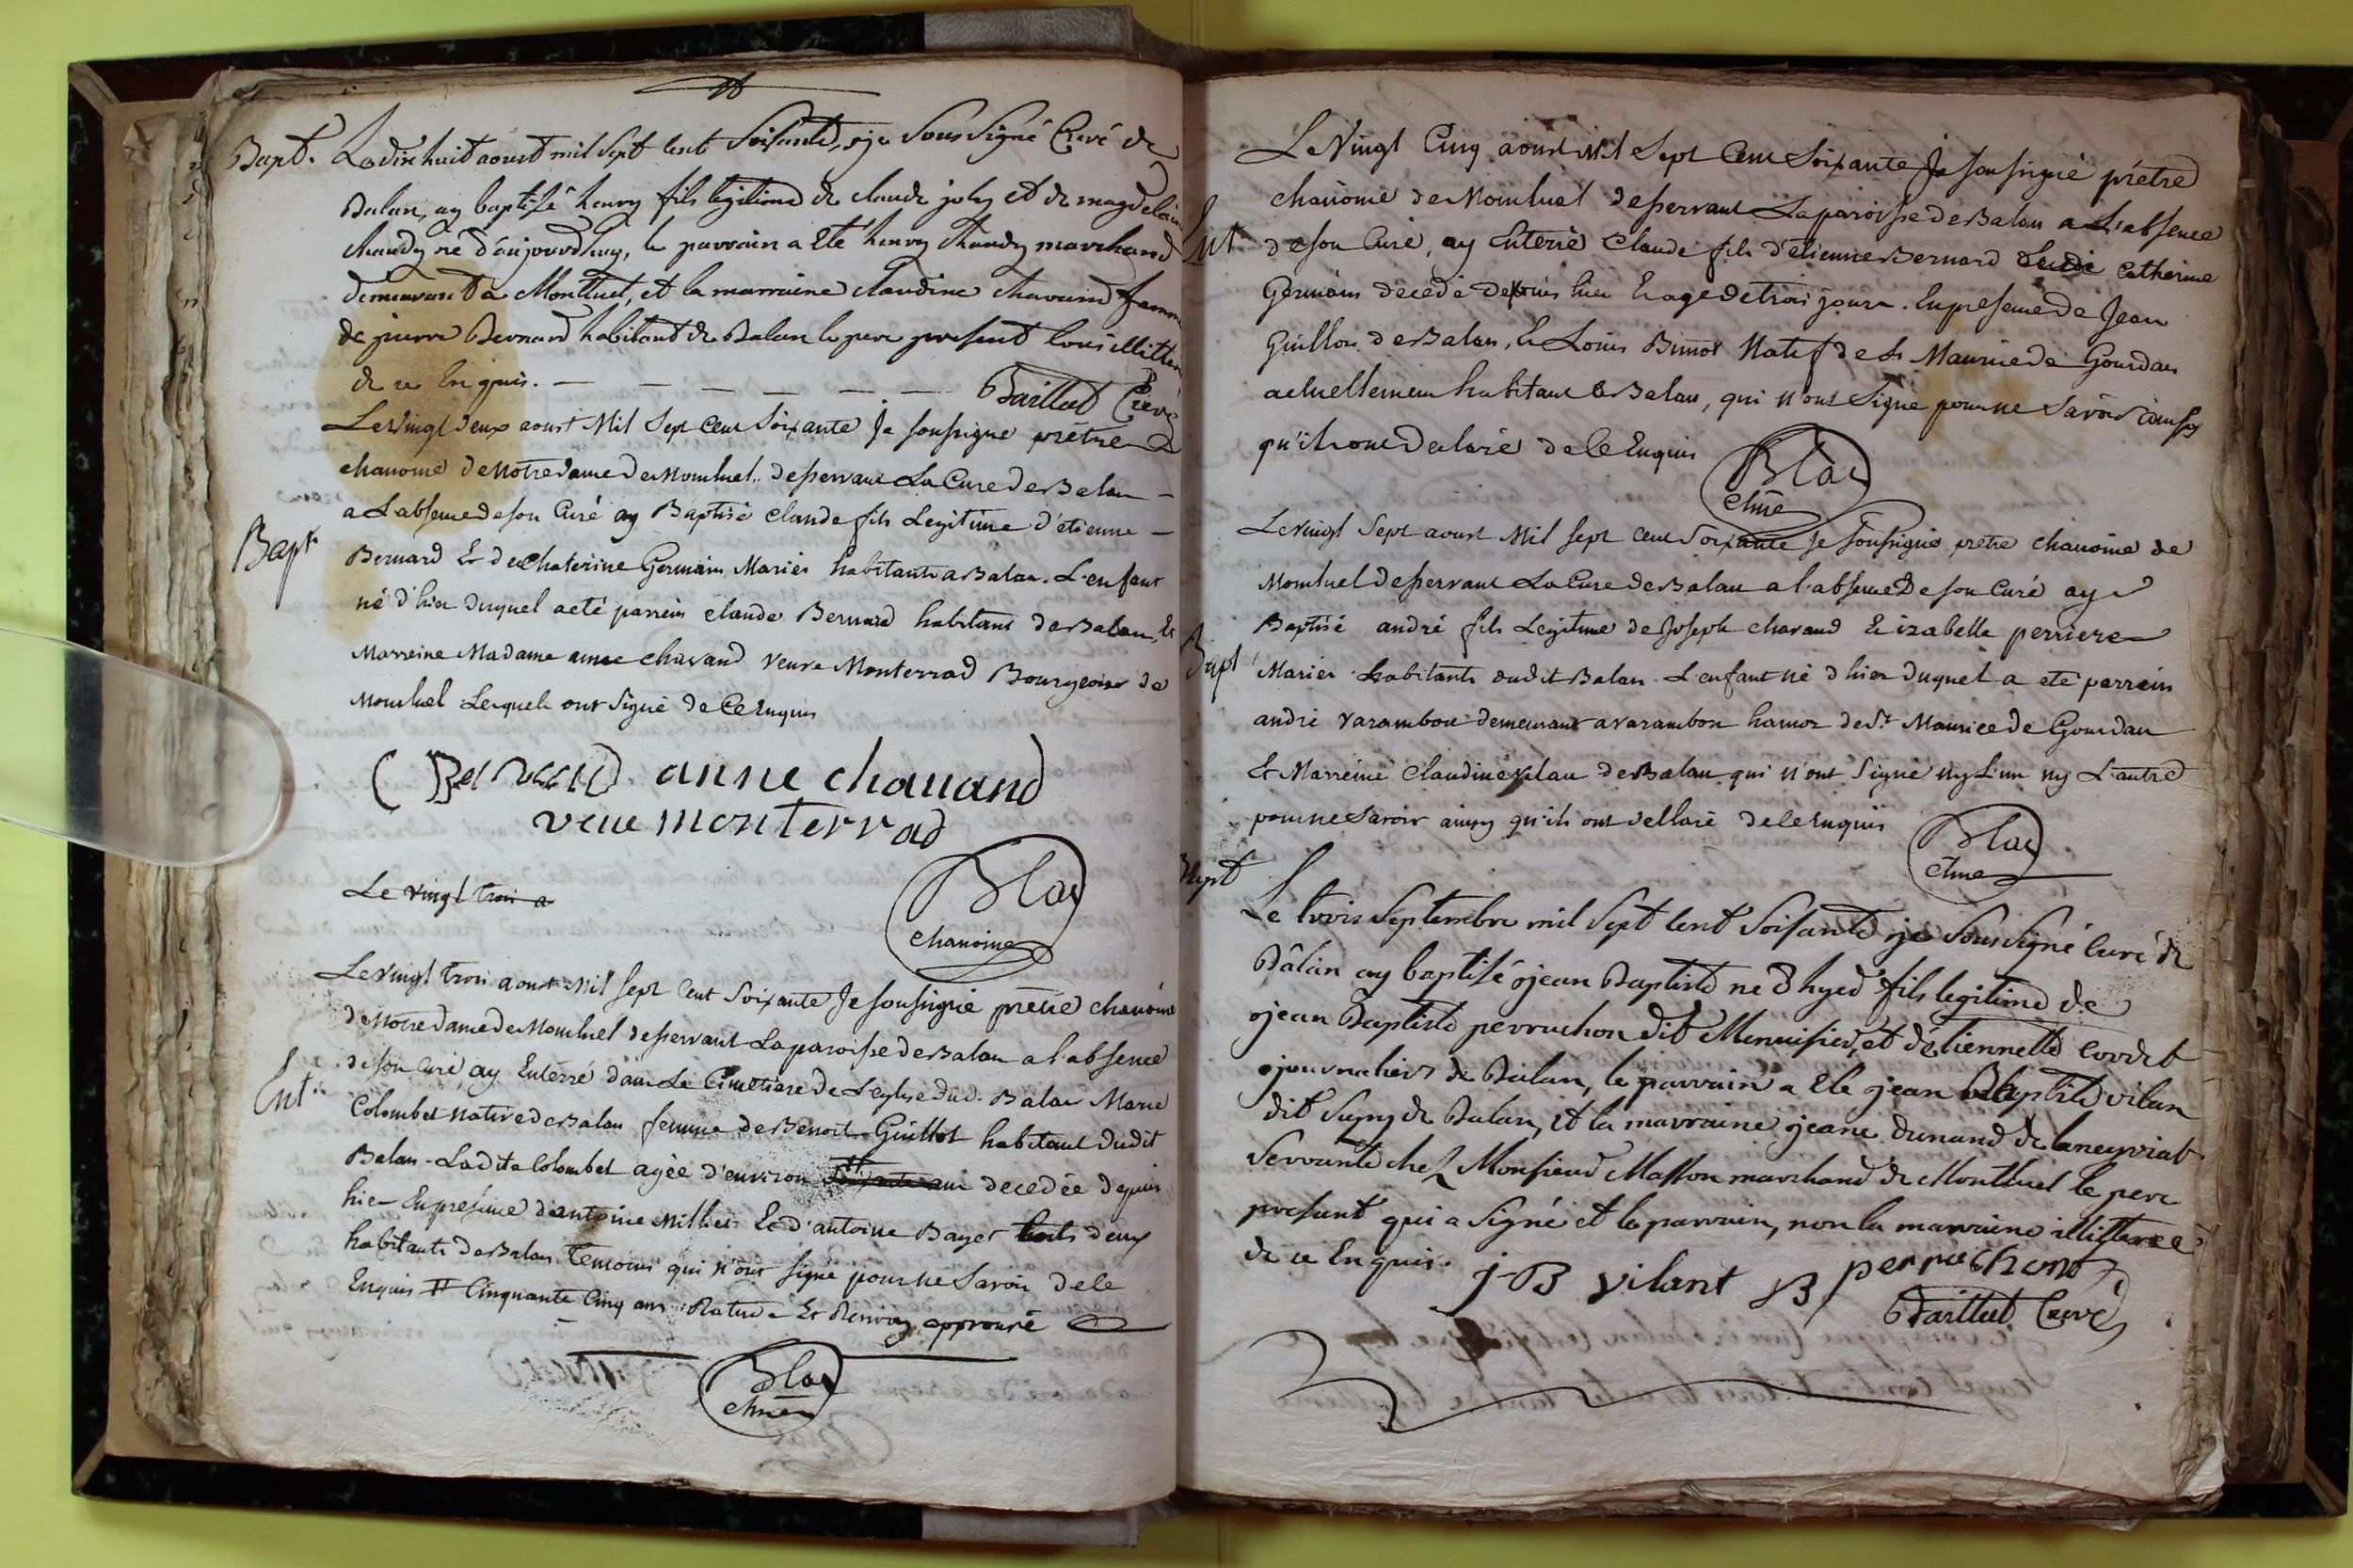 Bapt. Le dix huit aoust mil sept cent soisante, je sous signé Curé de
Balan, ay baptisé henry fils legitime de claude joly et de magdelaine
chaudy né d'aujourd'huy, le parrain a eté henry chaudy marchand
demeurant a Montluel, et la marraine claudine chavand femme
de pierre Bernard habitant de Balan le pere present tous illitterés
de ce Enquis. Baillet Curé
Le vingt deux aoust Mil Sept Cent Soixante Je soussigné prêtre
chanoine de Notre dame de Montluel desservant La Cure de Balan
a L'absence de son Curé ay Baptisé claude fils Legitime d'étienne
Bapt.
Bernard Et de Chaterine Germain Mariés habitants a Balan. L'enfant
né d'hier duquel a eté parrein claude Bernard habitant de Balan, Et
Marreine Madame anne chavand veuve Monterrad Bourgeoise de
Montluel Lesquels ont signé de Ce Enquis
Bernard anne chauand
veue monterrad
Blac
chanoine
Le vingt trois a
Le vingt trois aoust Mil sept Cent Soixante Je soussigné prêtre chanoine
de Notre dame de Montluel desservant La paroisse de Balan a l'absence
de son Curé, ay Enterré dans Le Cimettiere de L'eglise dud. Balan Marie
Ent.
Colombet native de Balan femme de Benoit Guillot habitant dudit
Balan. La dite Colombet agée d'environ # soixante ans decedée depuis
hier En presence d'antoine Millier Et d'antoine Bayet touts deux
habitants de Balan Temoins qui n'ont signé pour ne Savoir de Ce
Enquis # Cinquante Cinq ans. Rature Et Renvoy approuvé
Blac
chne
Le Vingt Cinq aoust Mil Sept Cent Soixante Je soussigné prêtre
chanoine de Montluel desservant La paroisse de Balan a L'absence
Ent
de son Curé, ay Enterré Claude fils d'étienne Bernard Catherine
Germain decedé depuis hier Et agé de trois jours. En presence de Jean
Guillon de Balan, Et Louis Binot Natif de St Maurice de Gourdan
actuellement habitant Balan, qui n'ont signé pour ne Savoir
qu'ils ont declaré de Ce Enquis
Blac
chne
Le vingt Sept aoust Mil sept cent Soixante Je soussigné prêtre chanoine de
Montluel desservant La Cure de Balan a l'absence de son Curé ay
Baptisé andré fils Legitime de Joseph chavand Et izabelle perriere
Bapt
Mariés habitants dudit Balan. L'enfant né d'hier duquel a eté parrein
andré varambon demeurant a varambon hamoz de St Maurice de Gourdan
Et Marreine Claudine vilan de Balan qui n'ont signé ny L'un ny L'autre
pour ne Savoir ainsy qu'ils ont dellaré de Ce Enquis
Blac
chne
Bapt
Le trois Septembre mil Sept Cent Soisante je Sous Signé Curé de
Balan ay baptisé jean Baptiste né d'hyer fils legitime de
jean Baptiste perruchon dit Menuisier, et d'étiennette Cordet
journaliers de Balan, le parrain a eté jean Baptiste vilan
dit Sugny de Balan, et la marraine jeane dunand de laneyriat
Servante chez Monsieur Masson marchand de Montluel le pere
present qui a Signé et le parrain, non la marraine illitteree
de ce Enquis.
j-B vilant JB perruchon
Baillet Curé